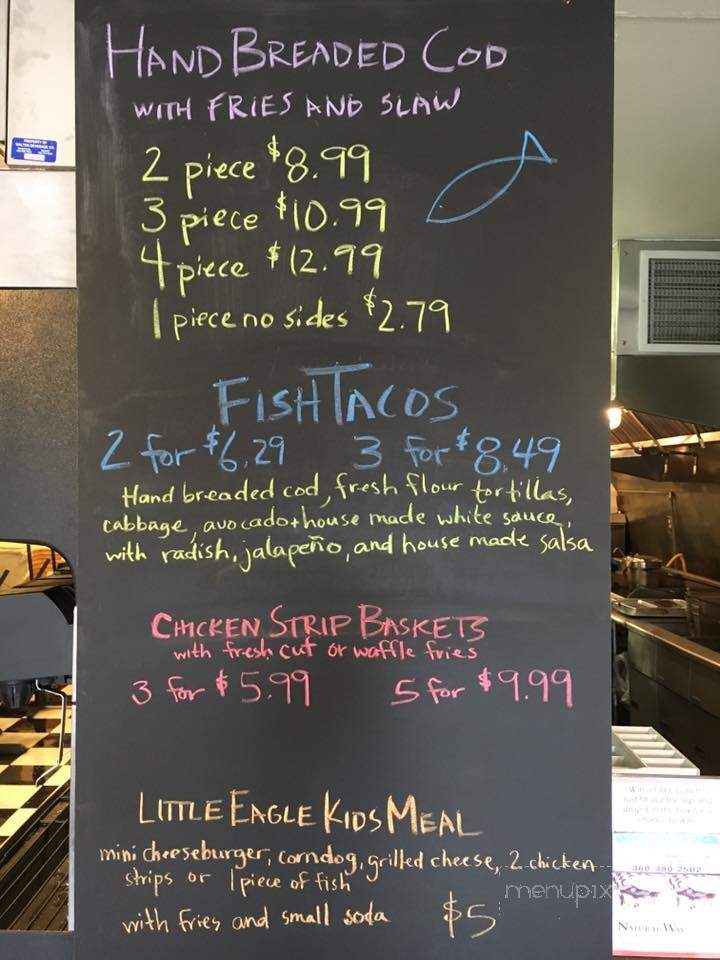 HAND BREADED COD
WITH FRIES AND SLAW
2 piece $8.99
3 piece $10.99
4 piece $12.99
1 piece no sides $2.79
FISH TACOS
2 for $6.29 3 for $8.49
Hand breaded cod, fresh flour tortillas,
cabbage, avocado + house made white sauce,
with radish, jalapeño, and house made salsa
CHICKEN STRIP BASKETS
with fresh cut or waffle fries
3 for $5.99 5 for $9.99
LITTLE EAGLE KIDS MEAL
mini cheeseburger, corndog, grilled cheese, 2 chicken
strips or 1 piece of fish
with fries and small soda $5
menupix
360-380-2502
NATURAL WAY
PROPERTY OF